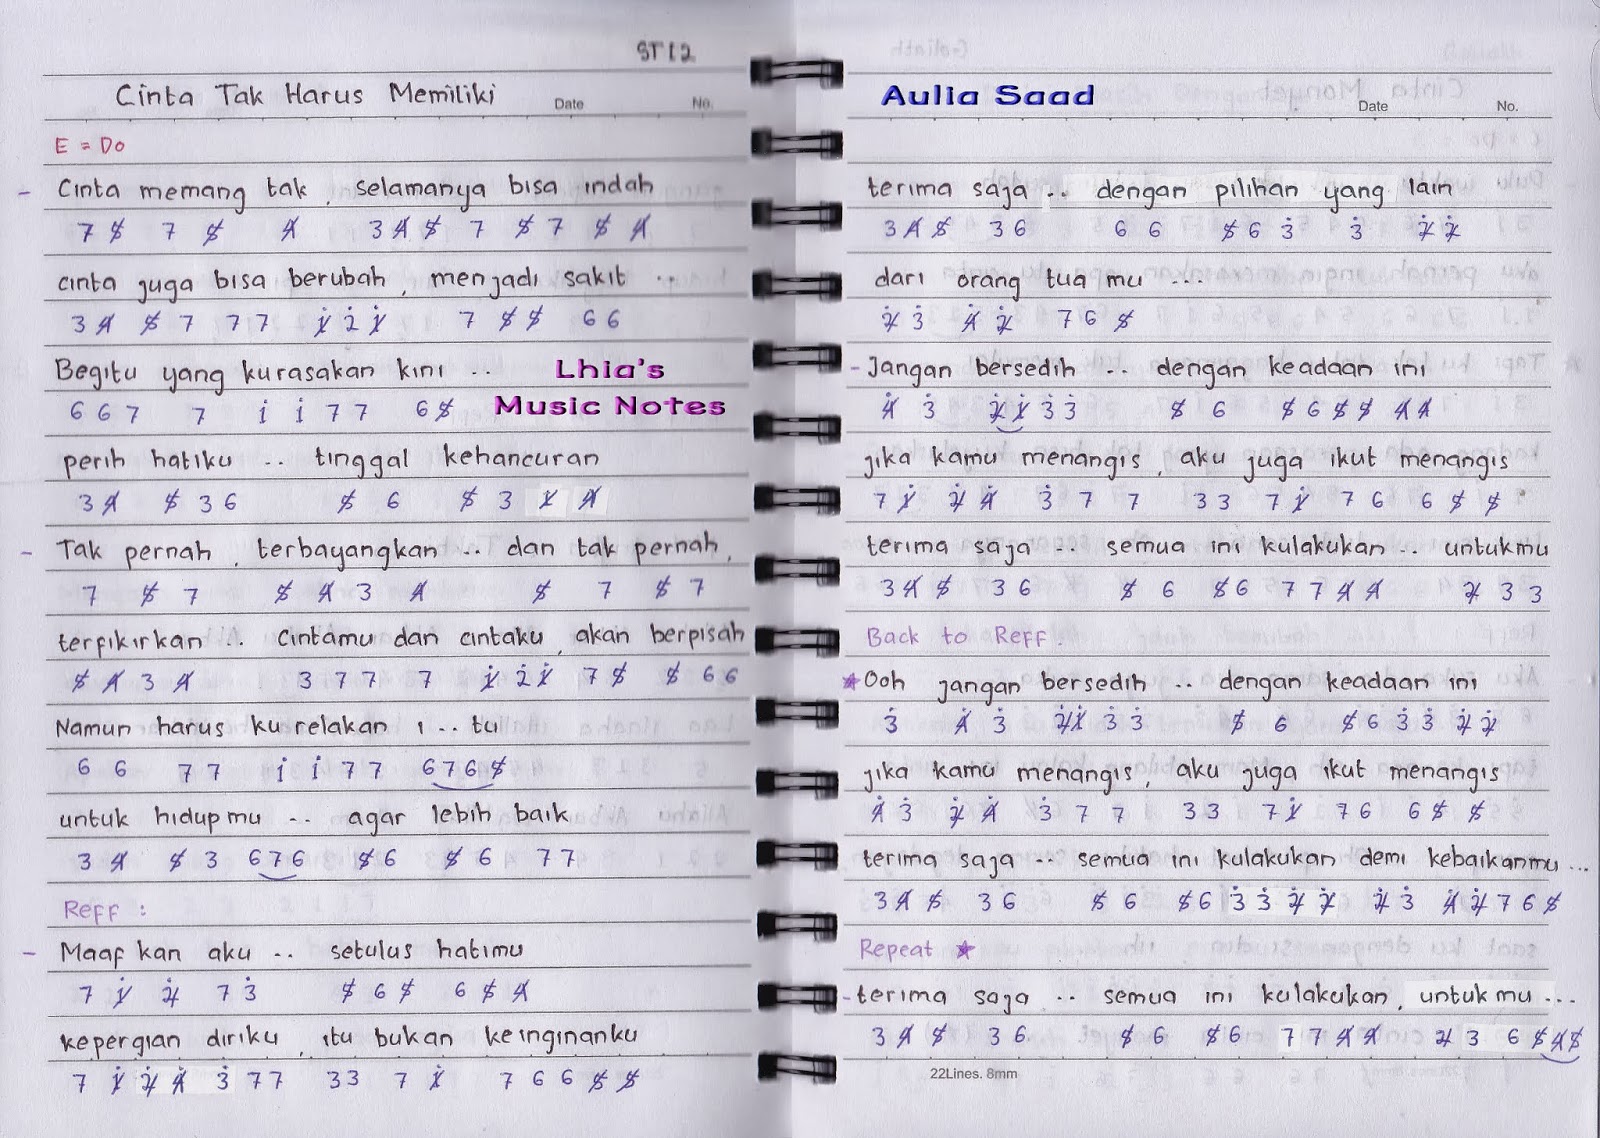 ST12
Cinta Tak Harus Memiliki
Date No.
E = Do
- Cinta memang tak, selamanya bisa indah
7 5 7 5 4 3 4 5 7 5 7 5 4
cinta juga bisa berubah, menjadi sakit ..
3 4 5 7 7 7 1 2 1 7 5 5 6 6
Begitu yang kurasakan kini ..
6 6 7 7 1 1 7 7 6 5
Lhia's
Music Notes
perih hatiku .. tinggal kehancuran
3 4 5 3 6 5 6 5 3 1 4
- Tak pernah, terbayangkan .. dan tak pernah,
7 5 7 5 4 3 4 5 7 5 7
terfikirkan .. cintamu dan cintaku, akan berpisah
5 4 3 4 3 7 7 7 1 2 1 7 5 5 6 6
Namun harus kurelakan i .. tu
6 6 7 7 1 1 7 7 6 7 6 5
untuk hidupmu .. agar lebih baik
3 4 5 3 6 7 6 5 6 5 6 7 7
Reff :
- Maaf kan aku .. setulus hatimu
7 1 2 7 3 5 6 5 6 5 4
kepergian diriku, itu bukan keinginanku
7 1 2 4 3 7 7 3 3 7 1 7 6 6 5 5
Aulia Saad
Date No.
terima saja .. dengan pilihan yang lain
3 4 5 3 6 6 6 5 6 3 3 2 2
dari orang tua mu ...
2 3 4 2 7 6 5
- Jangan bersedih .. dengan keadaan ini
4 3 2 1 3 3 5 6 5 6 5 5 4 4
jika kamu menangis, aku juga ikut menangis
7 1 2 4 3 7 7 3 3 7 1 7 6 6 5 5
terima saja .. semua ini kulakukan .. untukmu
3 4 5 3 6 5 6 5 6 7 7 4 4 2 3 3
Back to Reff.
★ Ooh jangan bersedih .. dengan keadaan ini
3 4 3 2 1 3 3 5 6 5 6 3 3 2 2
jika kamu menangis, aku juga ikut menangis
4 3 2 4 3 7 7 3 3 7 1 7 6 6 5 5
terima saja .. semua ini kulakukan demi kebaikanmu ...
3 4 5 3 6 5 6 5 6 3 3 2 2 2 3 4 2 7 6 5
Repeat ★
- terima saja .. semua ini kulakukan, untuk mu ...
3 4 5 3 6 5 6 5 6 7 7 4 4 2 3 6 5 4 5
22Lines. 8mm